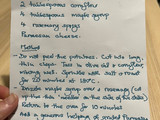 2 tablespoons cornflour
4 tablespoons maple syrup
4 rosemary sprigs
Parmesan cheese.
Method
- Do not peel the potatoes. Cut into long,
thin chips. Toss in olive oil & cornflour
mixing well. Sprinkle with salt & roast
for 20 minutes at 180°C.
- Drizzle maple syrup over & rosemary (at
the of the side)
- Return to the oven for 10 minutes
- Add a generous helping of grated Parmesan